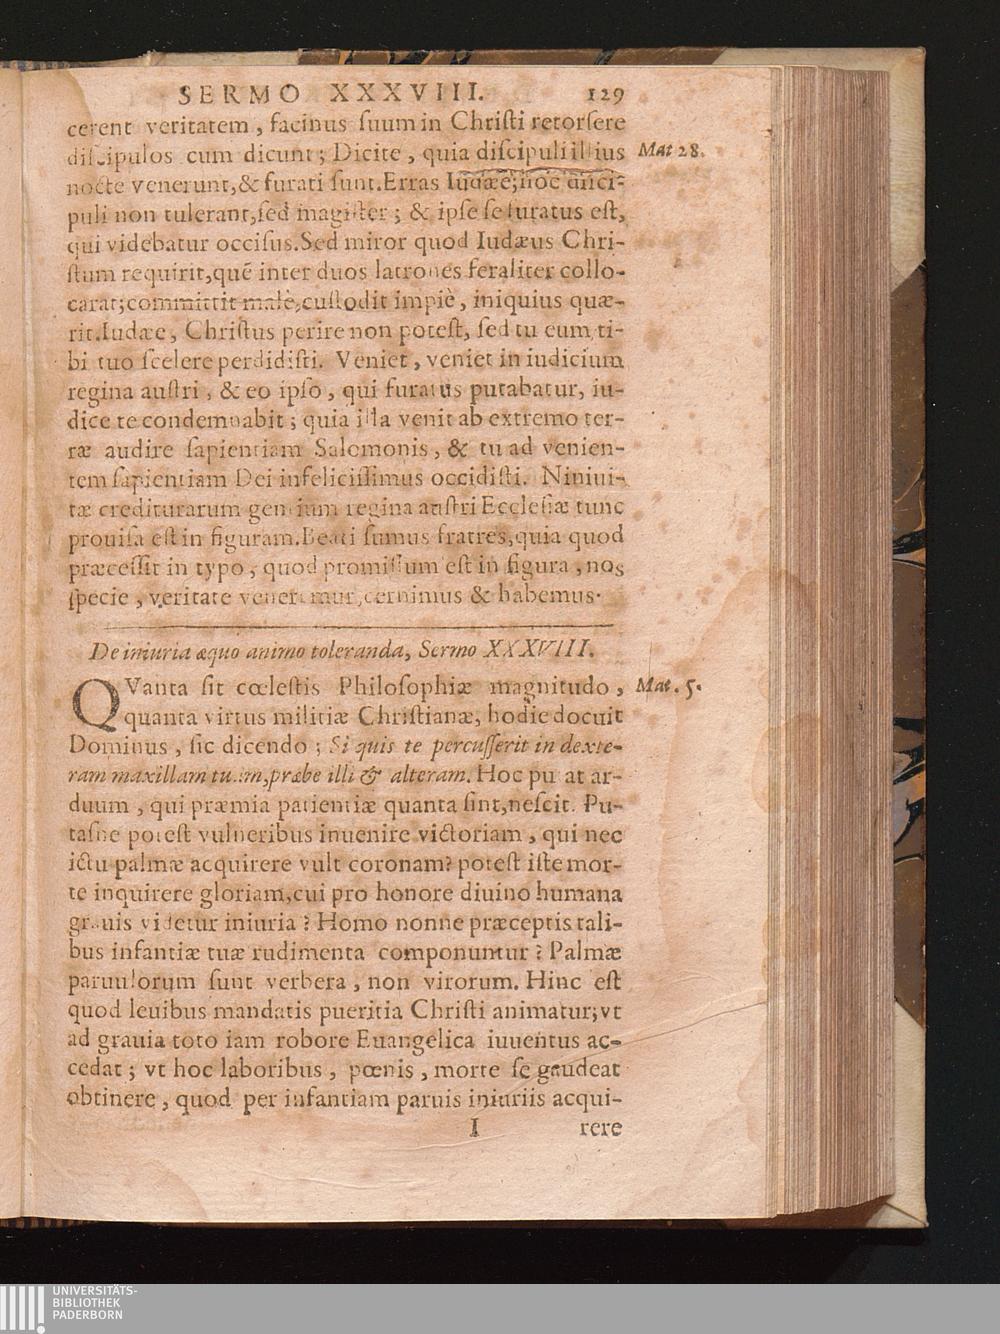 SERMO XXXVIII. 129
cerent veritatem, facinus suum in Christi retorsere
discipulos cum dicunt; Dicite, quia discipuli illius Mat 28.
nocte venerunt, & furati sunt. Erras Iudæe; hoc disci-
puli non tulerant, sed magister; & ipse se furatus est,
qui videbatur occisus. Sed miror quod Iudæus Chri-
stum requirit, quẽ inter duos latrones feraliter collo-
carat; committit malè, custodit impiè, iniquius quæ-
rit. Iudæe, Christus perire non potest, sed tu eum ti-
bi tuo scelere perdidisti. Veniet, veniet in iudicium
regina austri, & eo ipso, qui furatus putabatur, iu-
dice te condemnabit; quia illa venit ab extremo ter-
ræ audire sapientiam Salomonis, & tu ad venien-
tem sapientiam Dei infelicissimus occidisti. Niniui-
tæ crediturarum gentium regina austri Ecclesiæ tunc
prouisa est in figuram. Beati sumus fratres, quia quod
præcessit in typo, quod promissum est in figura, nos
specie, veritate veneramur, cernimus & habemus.
De iniuria æquo animo toleranda, Sermo XXXVIII.
QVanta sit cœlestis Philosophiæ magnitudo, Mat. 5.
quanta virtus militiæ Christianæ, hodie docuit
Dominus, sic dicendo; Si quis te percusserit in dexte-
ram maxillam tuam, præbe illi & alteram. Hoc putat ar-
duum, qui præmia patientiæ quanta sint, nescit. Pu-
tasne potest vulneribus inuenire victoriam, qui nec
ictu palmæ acquirere vult coronam? potest iste mor-
te inquirere gloriam, cui pro honore diuino humana
grauis videtur iniuria? Homo nonne præceptis tali-
bus infantiæ tuæ rudimenta componuntur? Palmæ
paruulorum sunt verbera, non virorum. Hinc est
quod leuibus mandatis pueritia Christi animatur; vt
ad grauia toto iam robore Euangelica iuuentus ac-
cedat; vt hoc laboribus, pœnis, morte se gaudeat
obtinere, quod per infantiam paruis iniuriis acqui-
I rere
UNIVERSITÄTS-
BIBLIOTHEK
PADERBORN